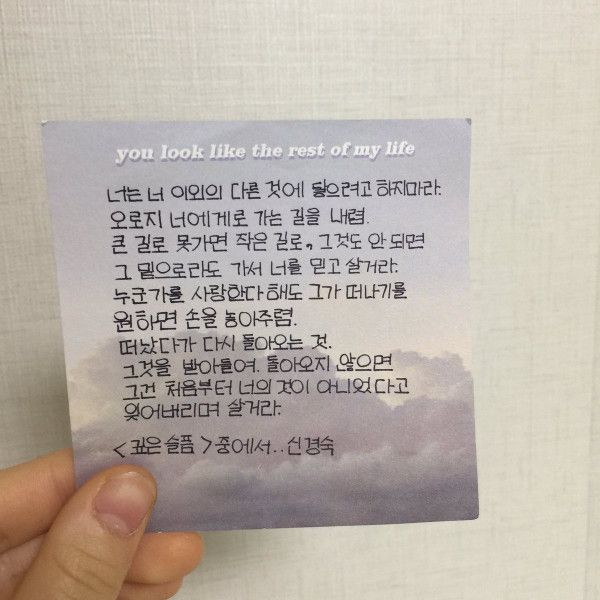 you look like the rest of my life
너는 너 이외의 다른 것에 닿으려고 하지마라.
오로지 너에게로 가는 길을 내렴.
큰 길로 못가면 작은 길로, 그것도 안되면
그 밑으로라도 가서 너를 믿고 살거라.
누군가를 사랑한다해도 그가 떠나기를
원하면 손을 놓아주렴.
떠났다가 다시 돌아오는 것.
그것을 받아들여. 돌아오지 않으면
그건 처음부터 너의 것이 아니었다고
잊어버리며 살거라.
<깊은슬픔>중에서..신경숙